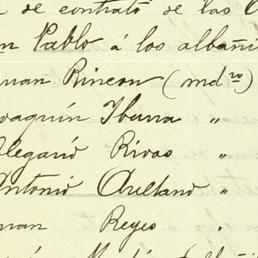 de contrato de las
Pablo á los albañi
uan Rincon (mdro)
oaquín Ibarra "
legario Rivas "
ntonio Arellano "
uan Reyes "